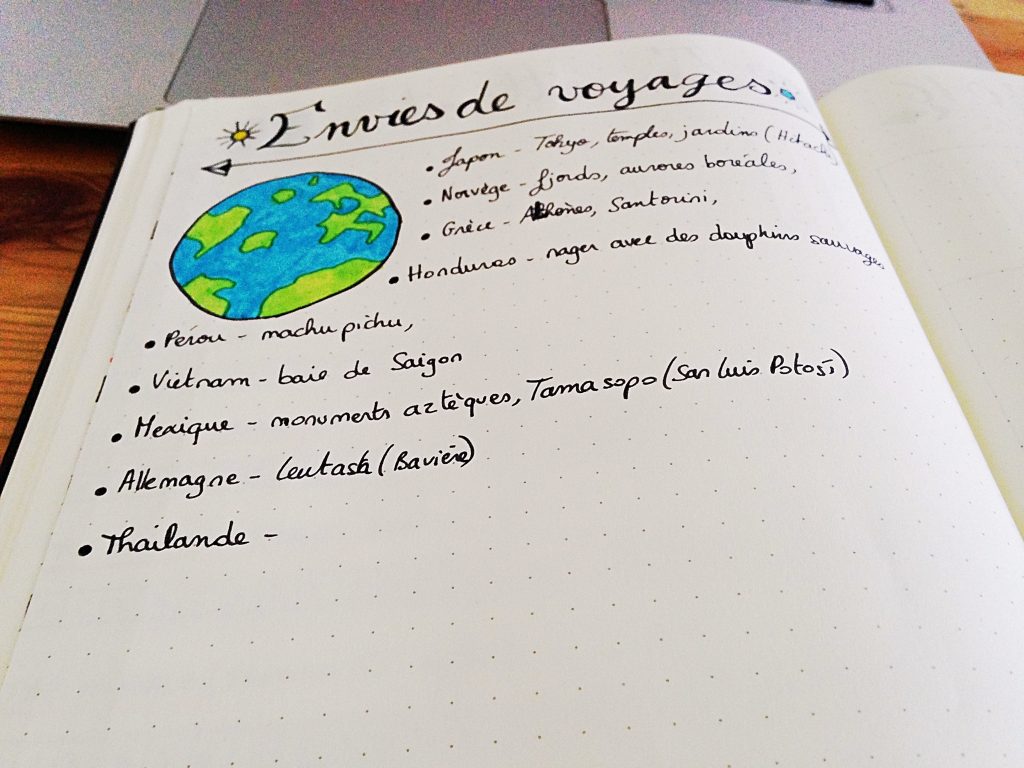 Envies de voyages.
• Japon - Tokyo, temples, jardins (Hitachi)
• Norvège - fjords, aurores boréales,
• Grèce - Athènes, Santorini,
• Honduras - nager avec des dauphins sauvages
• Pérou - machu pichu,
• Viêtnam - baie de Saigon
• Mexique - monuments aztèques, Tamasopo (San Luis Potosi)
• Allemagne - Leutash (Bavière)
• Thaïlande -